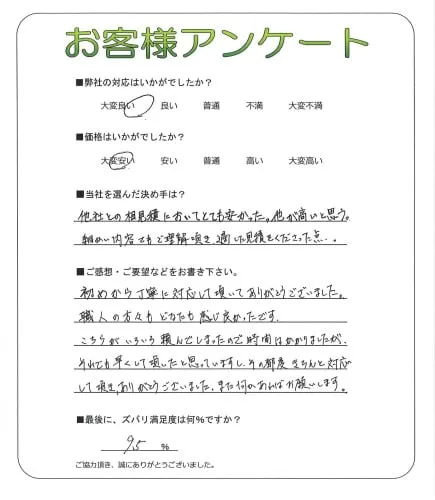 お客様アンケート
■弊社の対応はいかがでしたか?
大変良い 良い 普通 不満 大変不満
■価格はいかがでしたか?
大変安い 安い 普通 高い 大変高い
■当社を選んだ決め手は?
他社との相見積においてとても安かった。他が高いと思う。
細めい内容でもご理解頂き適した見積をくださった点。
■ご感想・ご要望などをお書き下さい。
初めから丁寧に対応して頂いてありがとうございました。
職人の方々もどなたも感じ良かったです。
こちらがいろいろ頼んでしまったので時間はかかりましたが、
それでも早くして頂いたと思っていますし、その都度きちんと対応
して頂き、ありがとうございました。また何かあればお願いします。
■最後に、ズバリ満足度は何%ですか?
95 %
ご協力頂き、誠にありがとうございました。